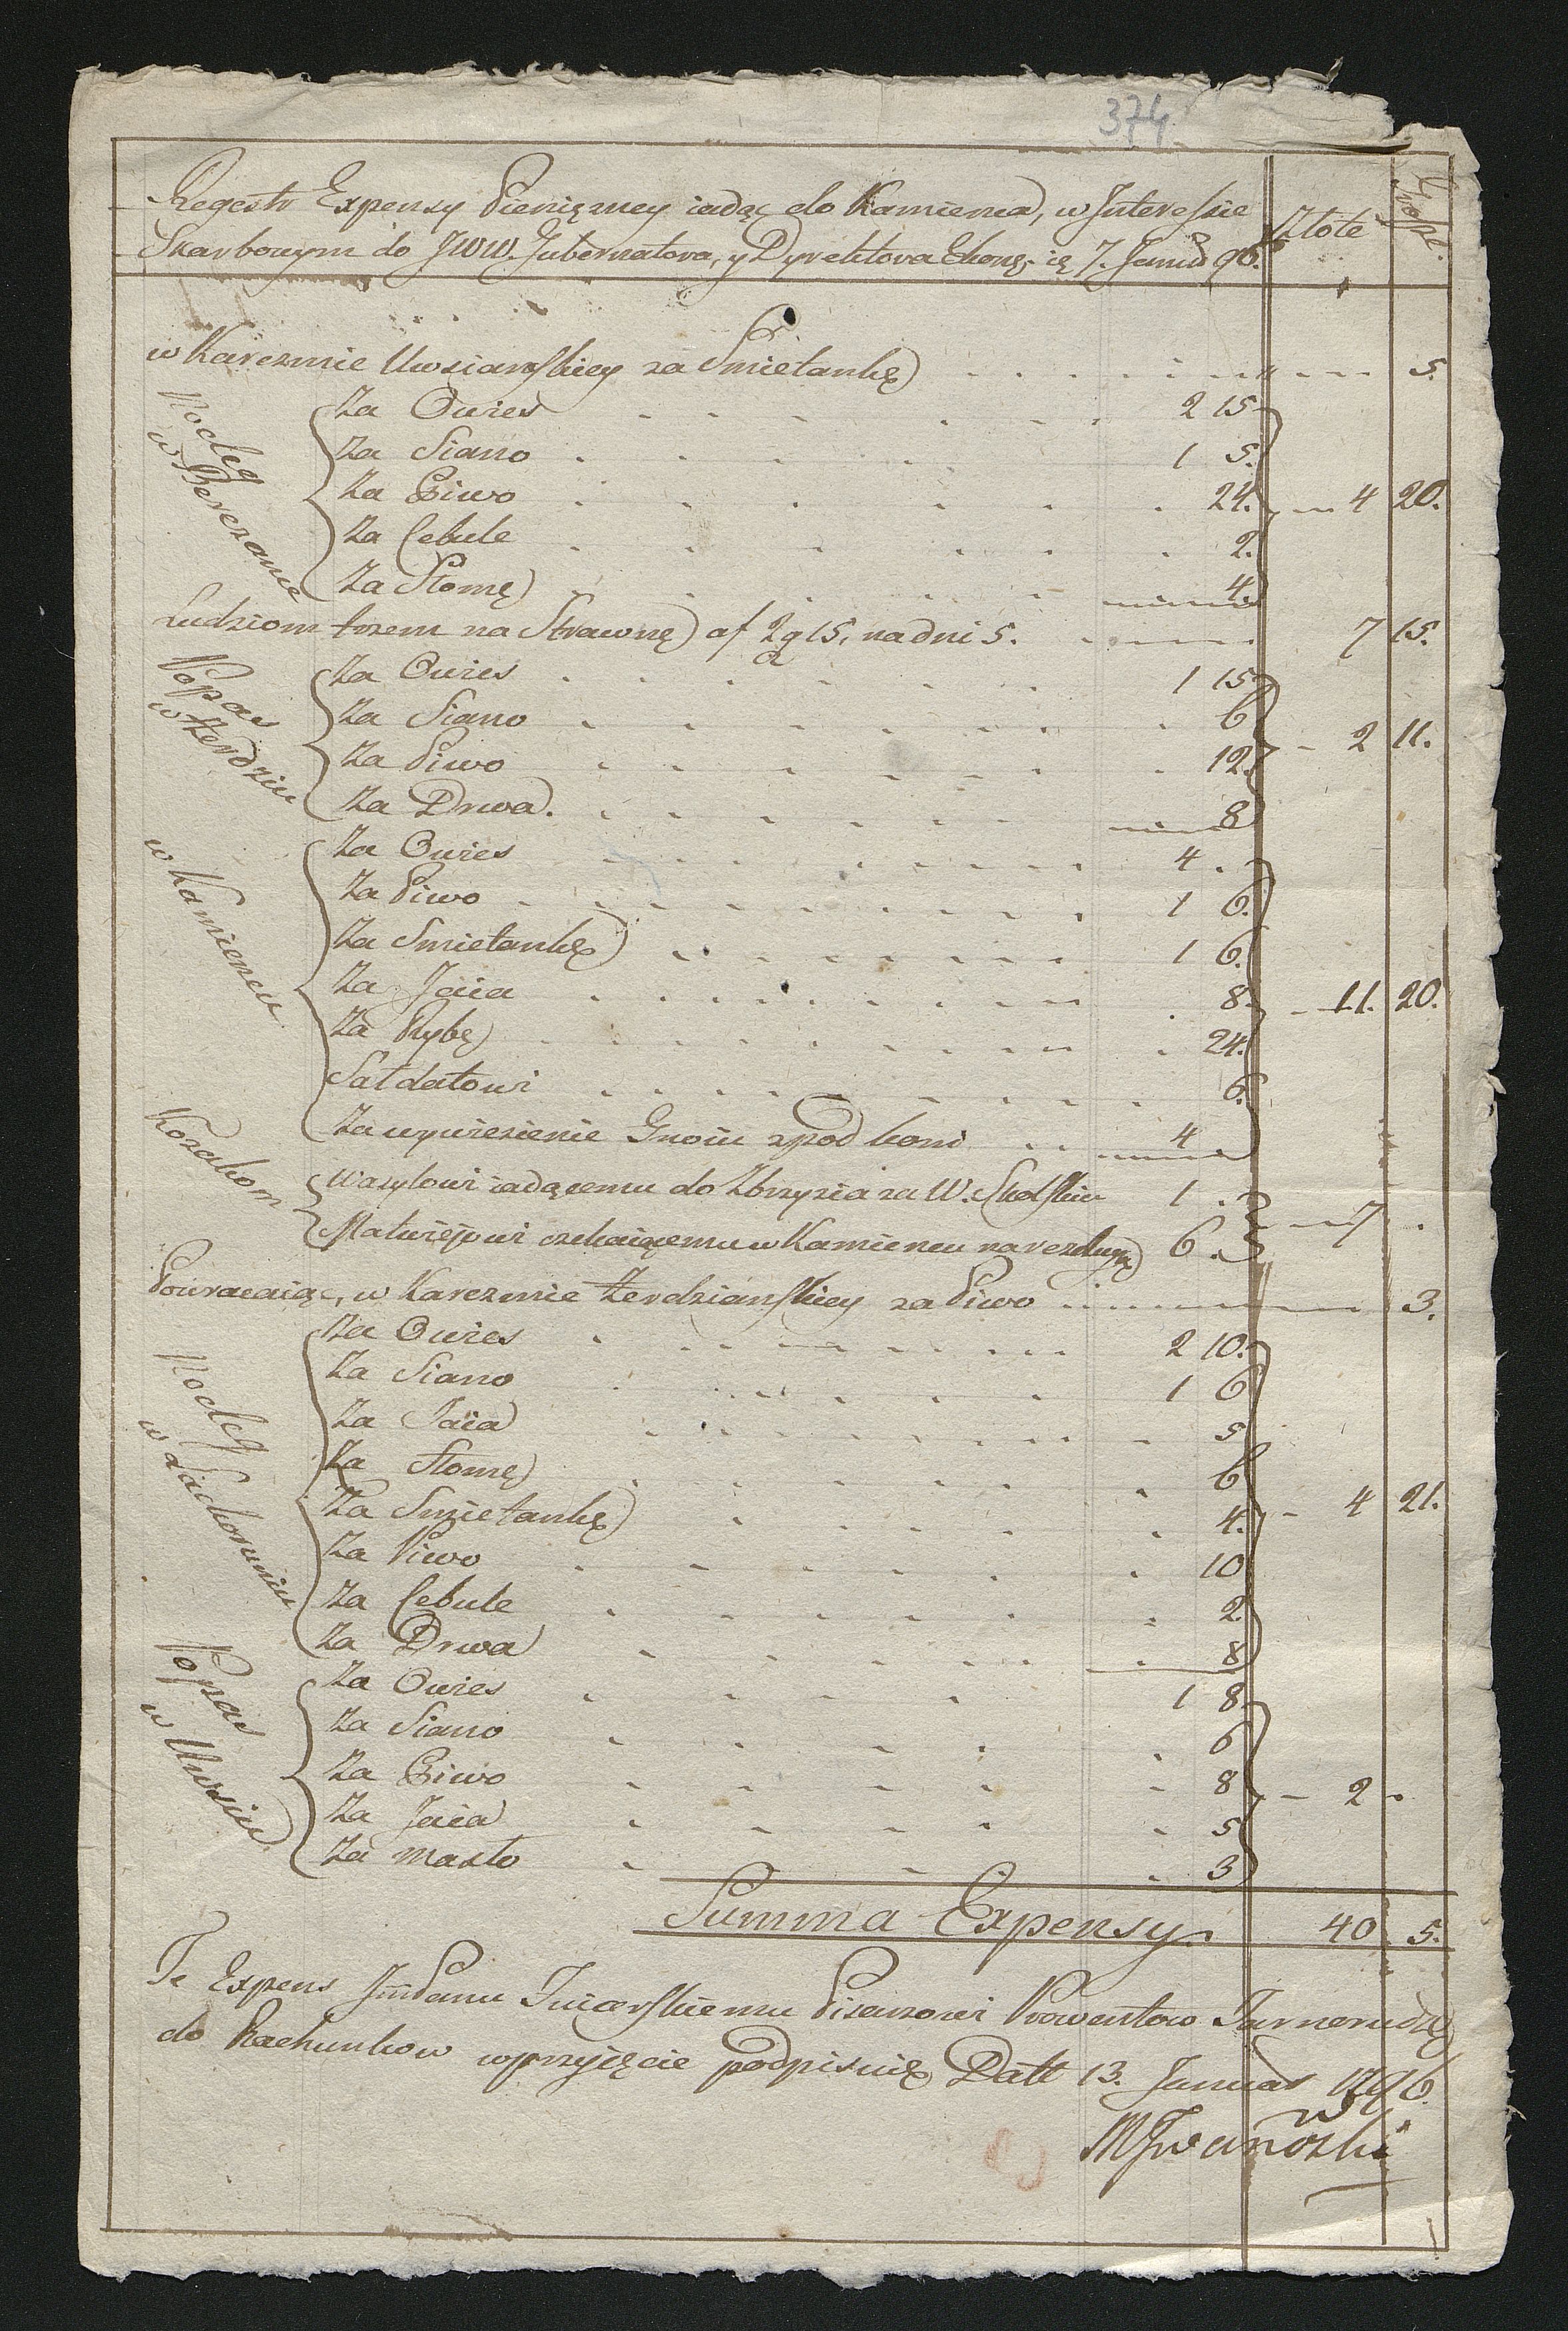 374.
Regestr Expensy Pieniężney iadąc do Kamieńca, w Interessie
Skarbowym do JWW. Gubernatora, y Dyrektora Ekong. ię 7. Januar 96.
Złote
Grosze
w Karczmie Uwsiańskiey za Smietankę 5.
Nocleg w Berezance
Za Owies 2 15
Za Siano 1 5.
Za Piwo 24. 4 20.
Za Cebule 2.
Za Słomę 4.
Ludziom trzem na Strawnę af 2 g 15, na dni 5. 7 15.
Popas w Żerdziu
Za Owies 1 15
Za Siano 6
Za Piwo 12 2 11.
Za Drwa. 8
w Kamiencu
Za Owies 4 .
Za Piwo 1 6.
Za Smietankę 1 6.
Za Jaia 8. 11. 20.
Za Rybę 24.
Sałdatowi 6.
Za wywiezienie Gnoiu zpod koni 4
Kozakom
Wasylowi iadącemu do Zbrzyzia za W. 1 .
Matwiejowi czekaiącemu w Kamiencu na rezolucyę 6 . 7 .
Powracaiąc, w Karczmie Żerdziańskiey za Piwo 3.
Nocleg w Lachowcu
Za Owies 2 10.
Za Siano 1 6
Za Jaia 5
Za Słomę 6
Za Smietankę 4. 4 21.
Za Piwo 10
Za Cebule 2
Za Drwa 8
Popas w Uwsiu
Za Owies 1 8.
Za Siano 6
Za Piwo 8 2 .
Za Jaia 5
Za masło 3
Summa Expensy. 40 5.
Te Expens JmPanu Pisarzowi Prowentow
do Rachunkow wprzyięcie podpisuię Datt 13. Januar 1796.
MIwanowski